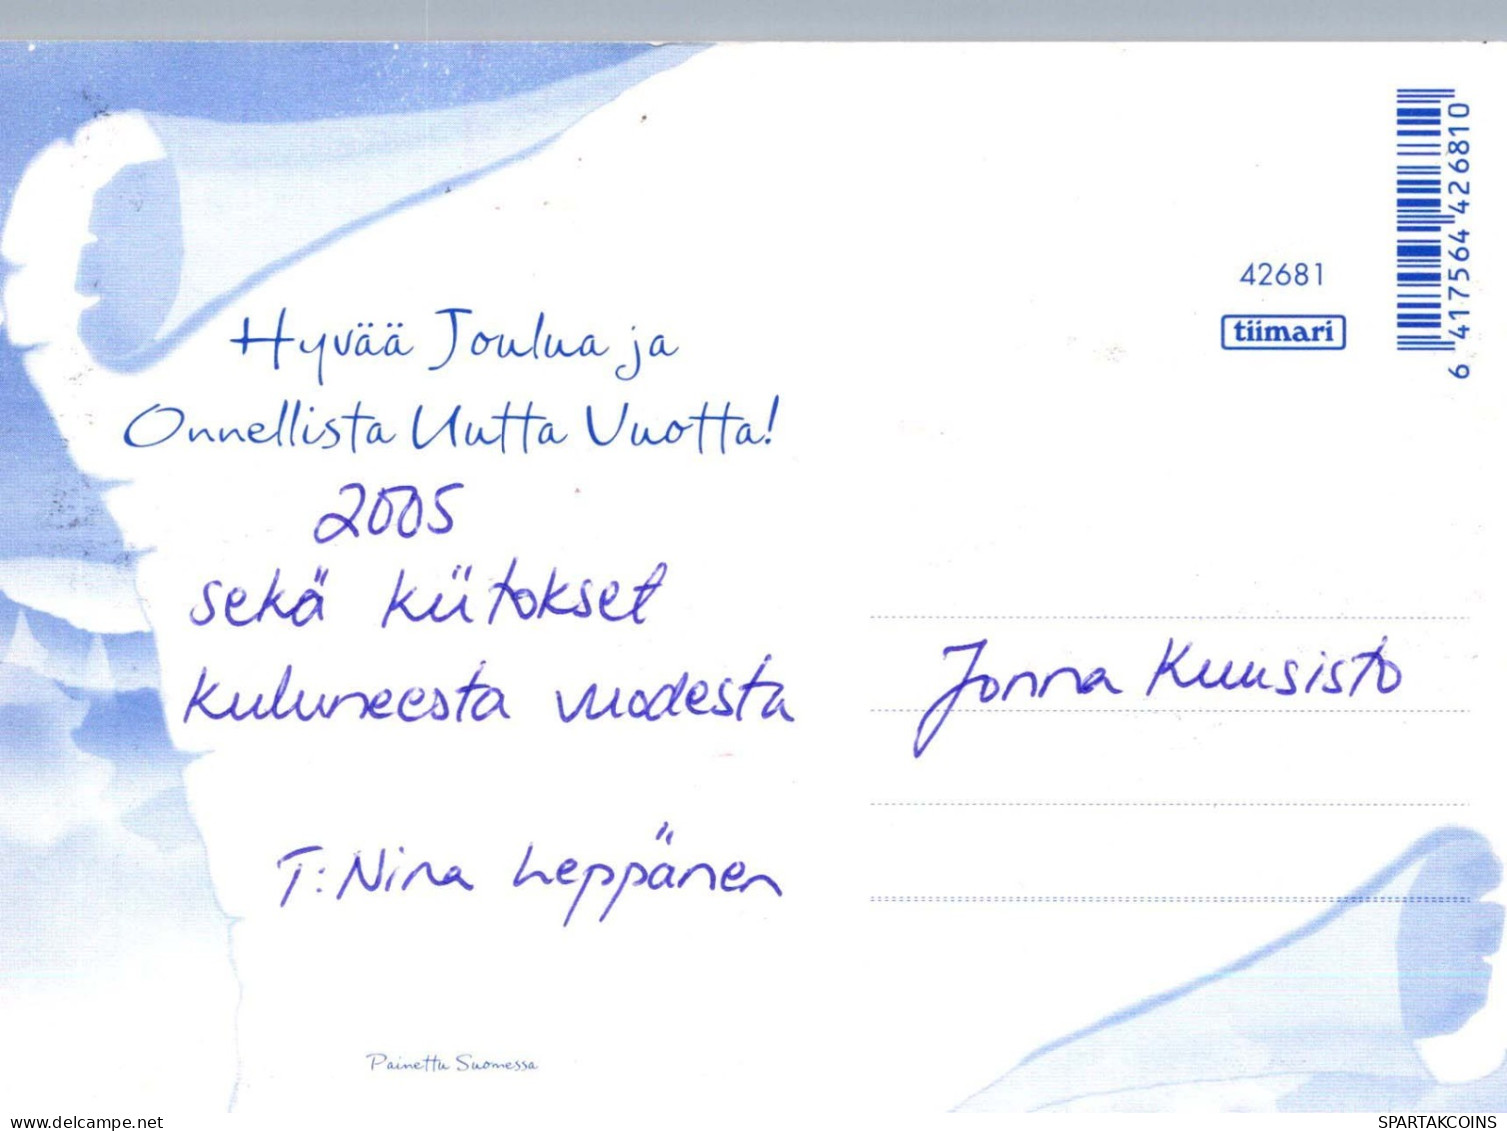 Hyvää Joulua ja
Onnellista Uutta Vuotta!
2005
sekä kiitokset
kuluneesta vuodesta
T: Nina Leppänen
Painettu Suomessa
42681
tiimari
6 417564 426810
Jonna Kuusisto
www.delcampe.net
SPARTAKCOINS